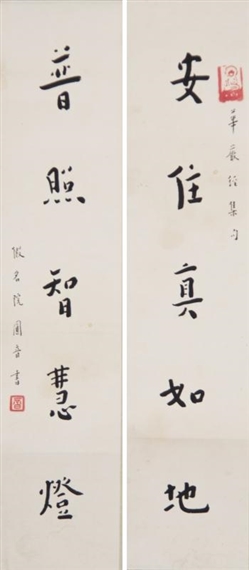 華嚴經集句
安住真如地
普照智慧燈
圓音書